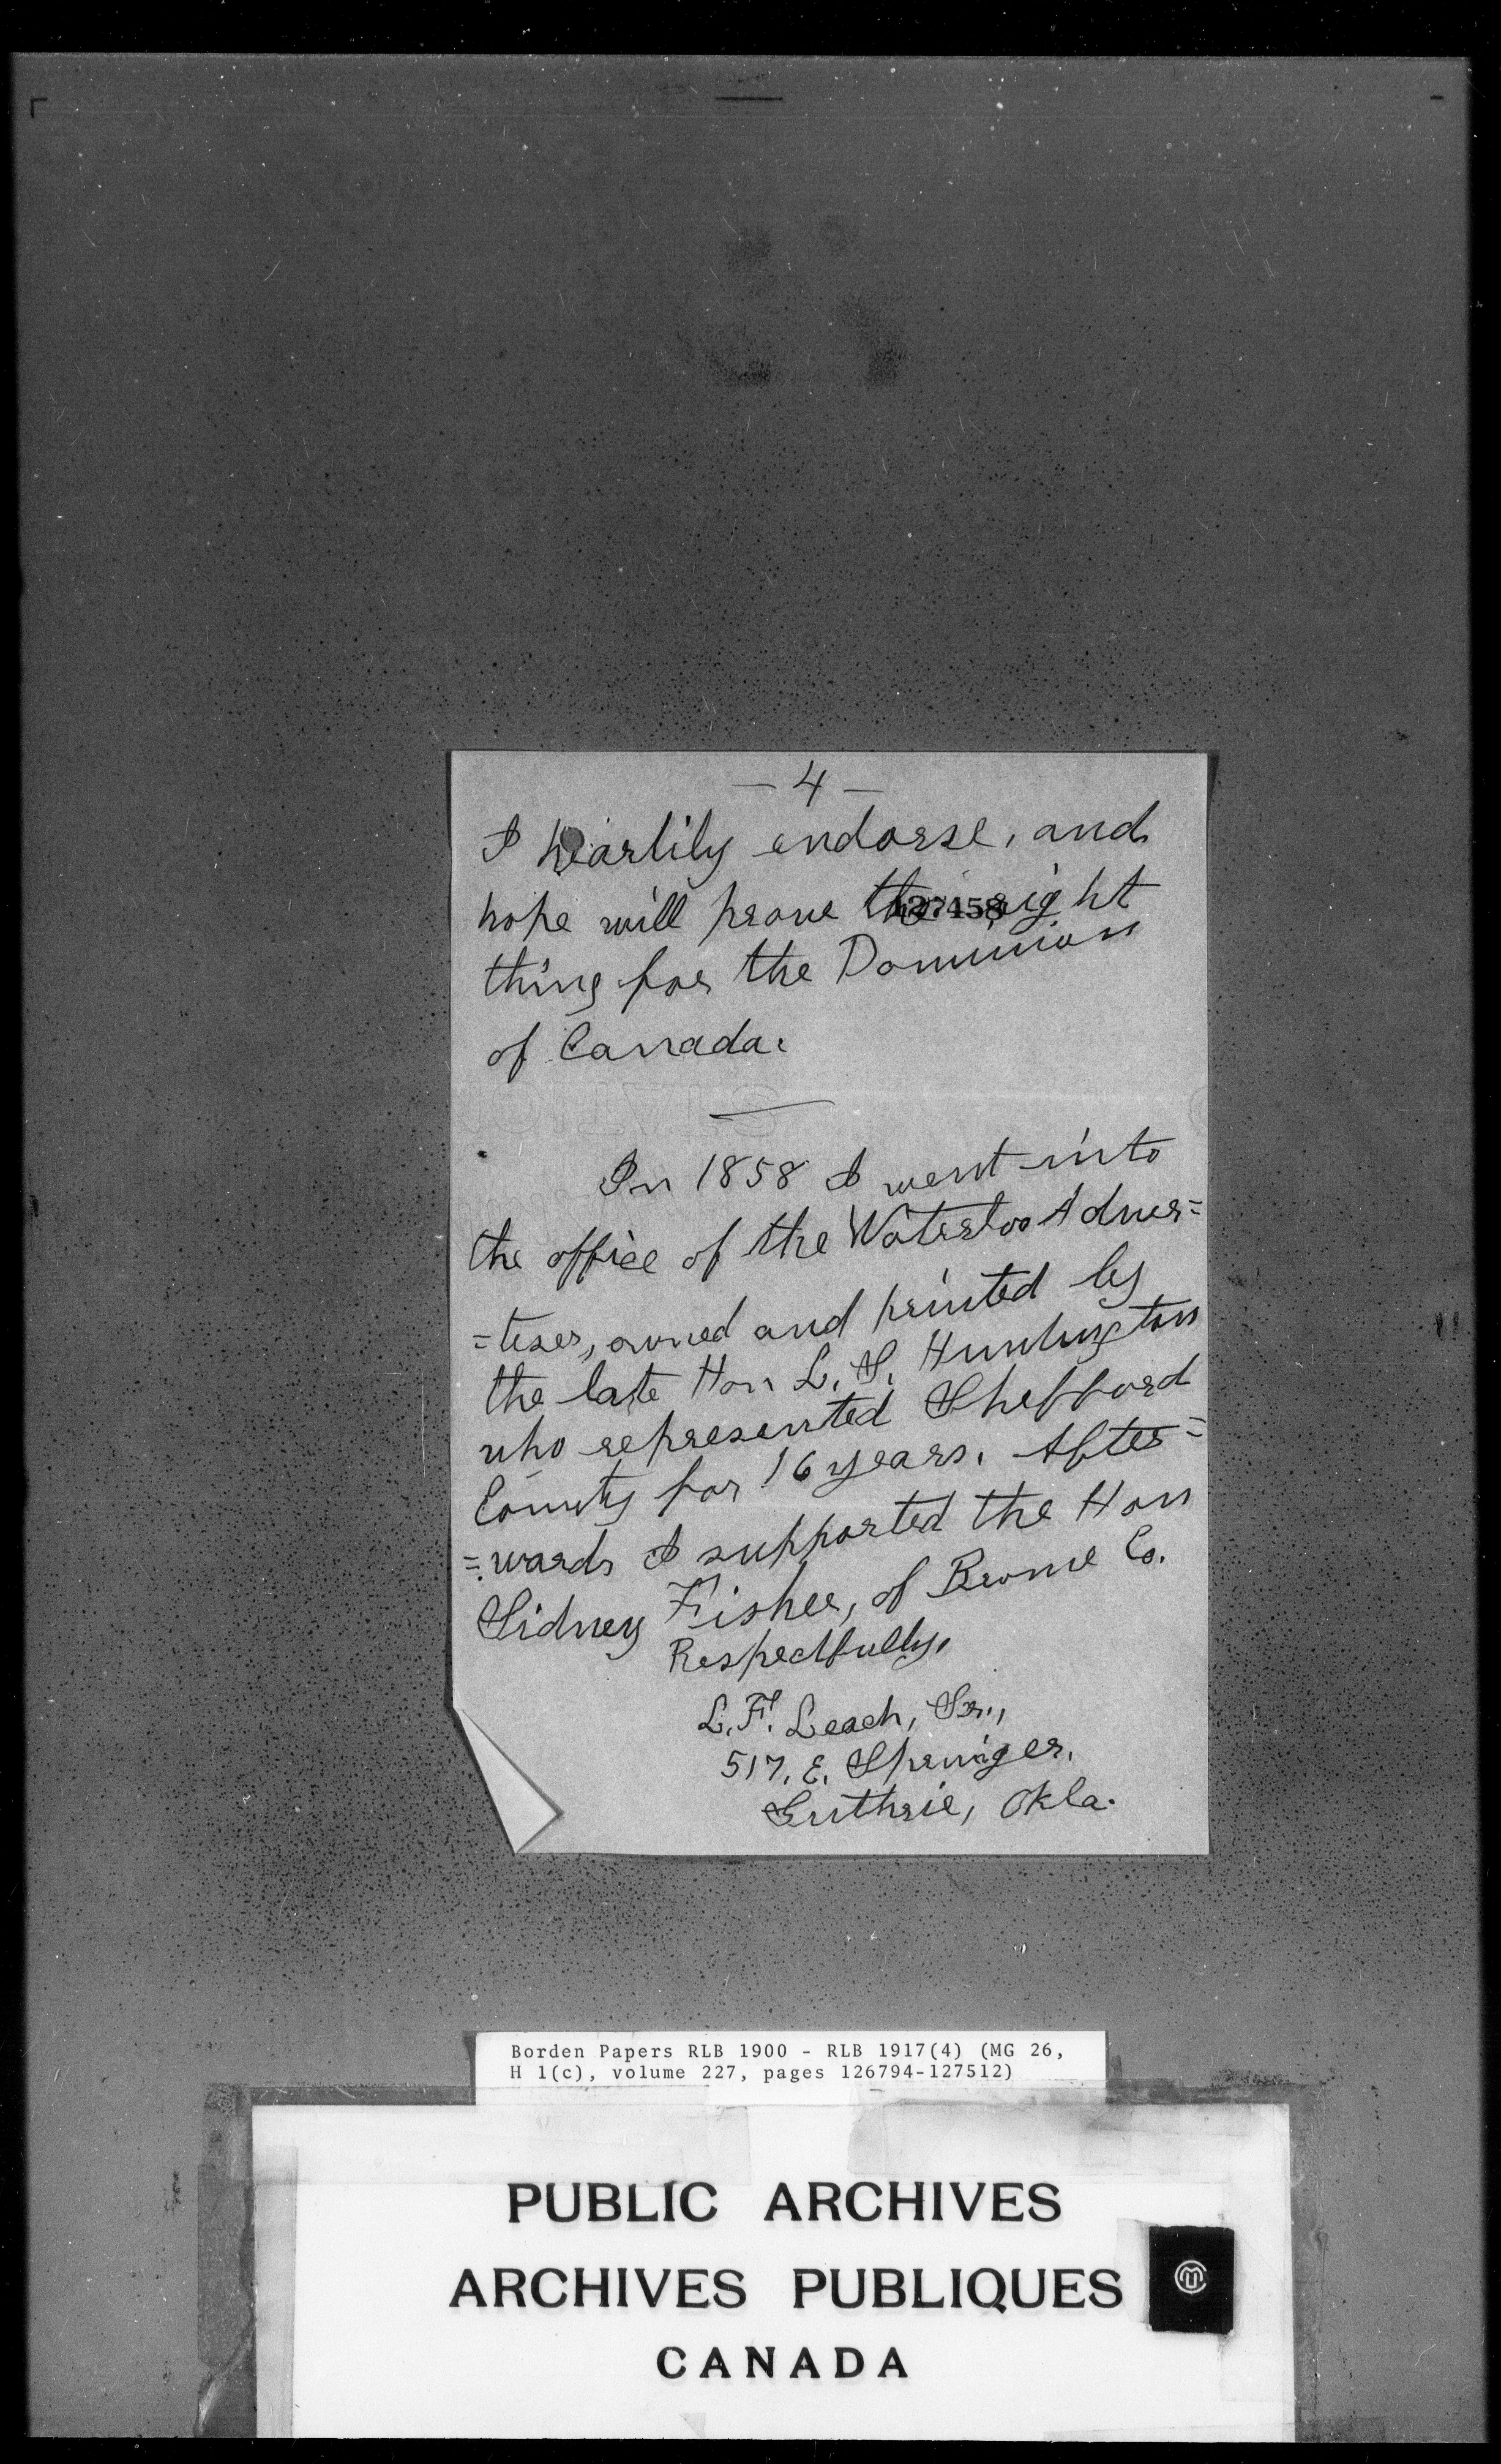 — 4 —
I heartily endorse, and
hope will prove the right
127458
thing for the Dominion
of Canada.
In 1858 I went into
the office of the Waterloo Adver=
=tiser, owned and printed by
the late Hon L. S. Huntington
who represented Shefford
County for 16 years. After=
=wards I supported the Hon
Sidney Fisher, of Brome Co.
Respectfully,
L. F. Leach, Sr.,
517, E. Springer,
Guthrie, Okla.
Borden Papers RLB 1900 - RLB 1917(4) (MG 26,
H 1(c), volume 227, pages 126794-127512)
PUBLIC ARCHIVES
ARCHIVES PUBLIQUES
CANADA